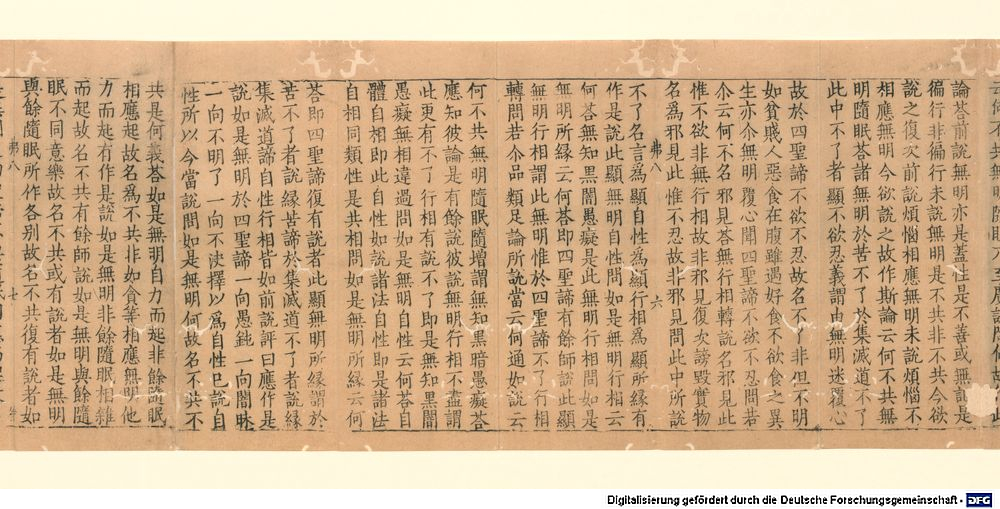 論荅前說無明亦是蓋性是不善或無記是
徧行非徧行未說無明是不共非不共今欲
說之復次前說煩惱相應無明未說煩惱不
相應無明今欲說之故作斯論云何不共無
明隨眠荅諸無明於苦不了於集滅道不了
此中不了者顯不欲忍義謂由無明迷覆心
故於四聖諦不欲不忍故名不了非但不明
如貧賤人惡食在腹雖遇好食不欲食之異
生亦介無明覆心聞四聖諦不欲不忍問若
介云何不名邪見荅無行相轉說名邪見此
惟不欲非無行相故非邪見復次謗毀實物
名為邪見此惟不忍故非邪見問此中所說
弗八 六
不了名言為顯自性為顯行相為顯所緣有
作是說此顯無明自性問如是無明行相云
何荅無知黒闇愚癡是此無明行相問如是
無明所緣云何荅即四聖諦有餘師說此顯
無明行相謂此無明惟於四聖諦不了行相
轉問若介品類足論所說當云何通如說云
何不共無明隨眠隨增謂無知黒暗愚癡荅
應知彼論是有餘說彼說無明行相不盡謂
此更有不了行相有說不了即是無知黒闇
愚癡無相違過問如是無明自性云何荅自
體自相即此自性如說諸法自性即是諸法
自相同類性是共相問如是無明所緣云何
荅即四聖諦復有說者此顯無明所緣謂於
苦不了者說緣苦諦於集滅道不了者說緣
集滅道諦自性行相皆如前說評曰應作是
說如是無明於四聖諦一向愚鈍一向闇昧
一向不明了一向不决擇以為自性已說自
性所以今當說問如是無明何故名不共不
共是何義荅如是無明自力而起非餘隨眠
相應起故名為不共非如食等相應無明他
力而起有作是說如是無明非餘隨眠相雜
而起故名不共有餘師說如是無明與餘隨
眠不同意樂故名不共或有說者如是無明
與餘隨眠所作各別故名不共復有說者如
弗八 七
Digitalisierung gefördert durch die Deutsche Forschungsgemeinschaft - DFG